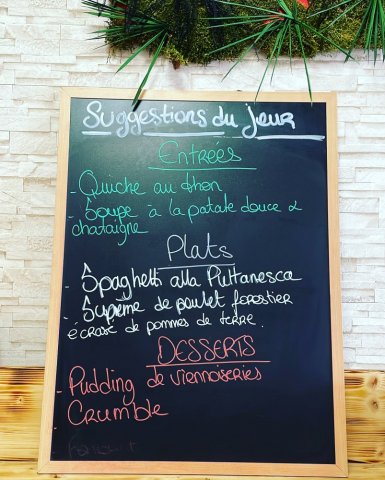 Suggestions du jour
Entrées
- Quiche au thon
- Soupe à la patate douce &
chataigne
Plats
- Spaghetti alla Puttanesca
- Suprême de poulet forestier
écrasé de pommes de terre.
DESSERTS
- Pudding de viennoiseries
Crumble